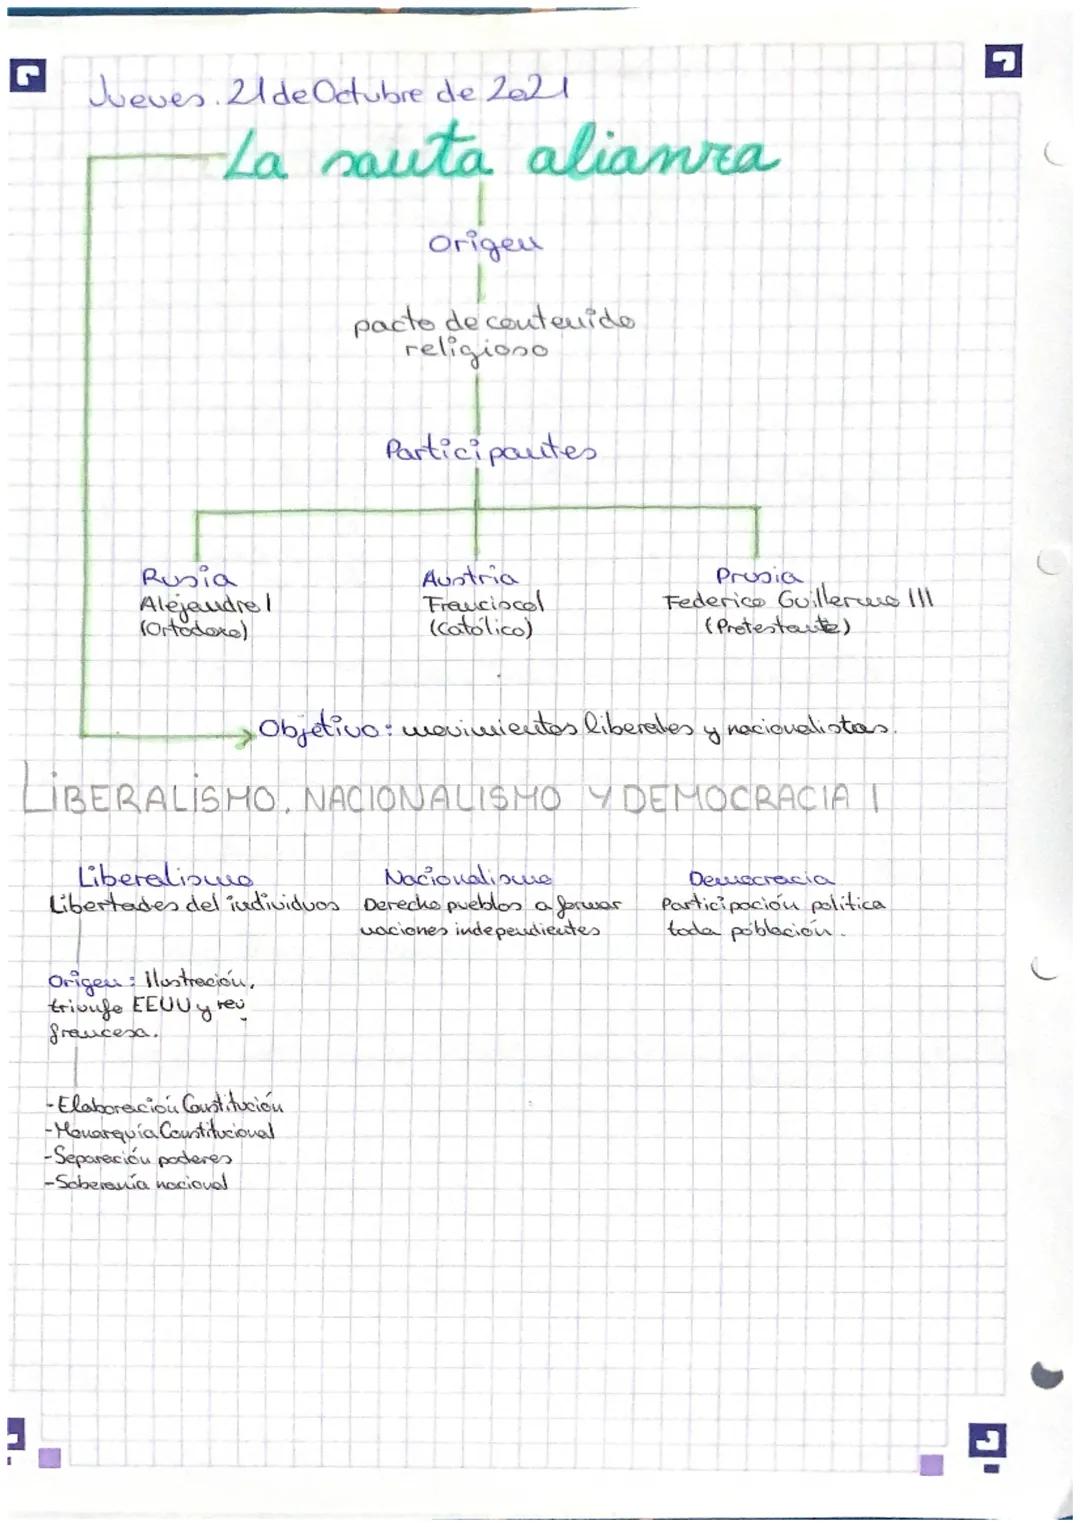 Jueves. 21 de Octubre de 2021
La santa alianza
Origen
pacto de contenido
religioso
Participantes
Rusia
Alejandro I
(Ortodoxo)
Austria
Francisco I
(Católico)
Prusia
Federico Guillermo III
(Protestante)
Objetivo: movimientos liberales y nacionalistas.
LIBERALISMO, NACIONALISMO Y DEMOCRACIA I
Liberalismo
Libertades del individuos
Nacionalismo
Derecho pueblos a formar
naciones independientes
Democracia
Participación política
toda población.
Origen: Ilustración,
triunfo EEUU y rev
francesa.
-Elaboración Constitución
-Monarquía Constitucional
-Separación poderes
-Soberanía nacional